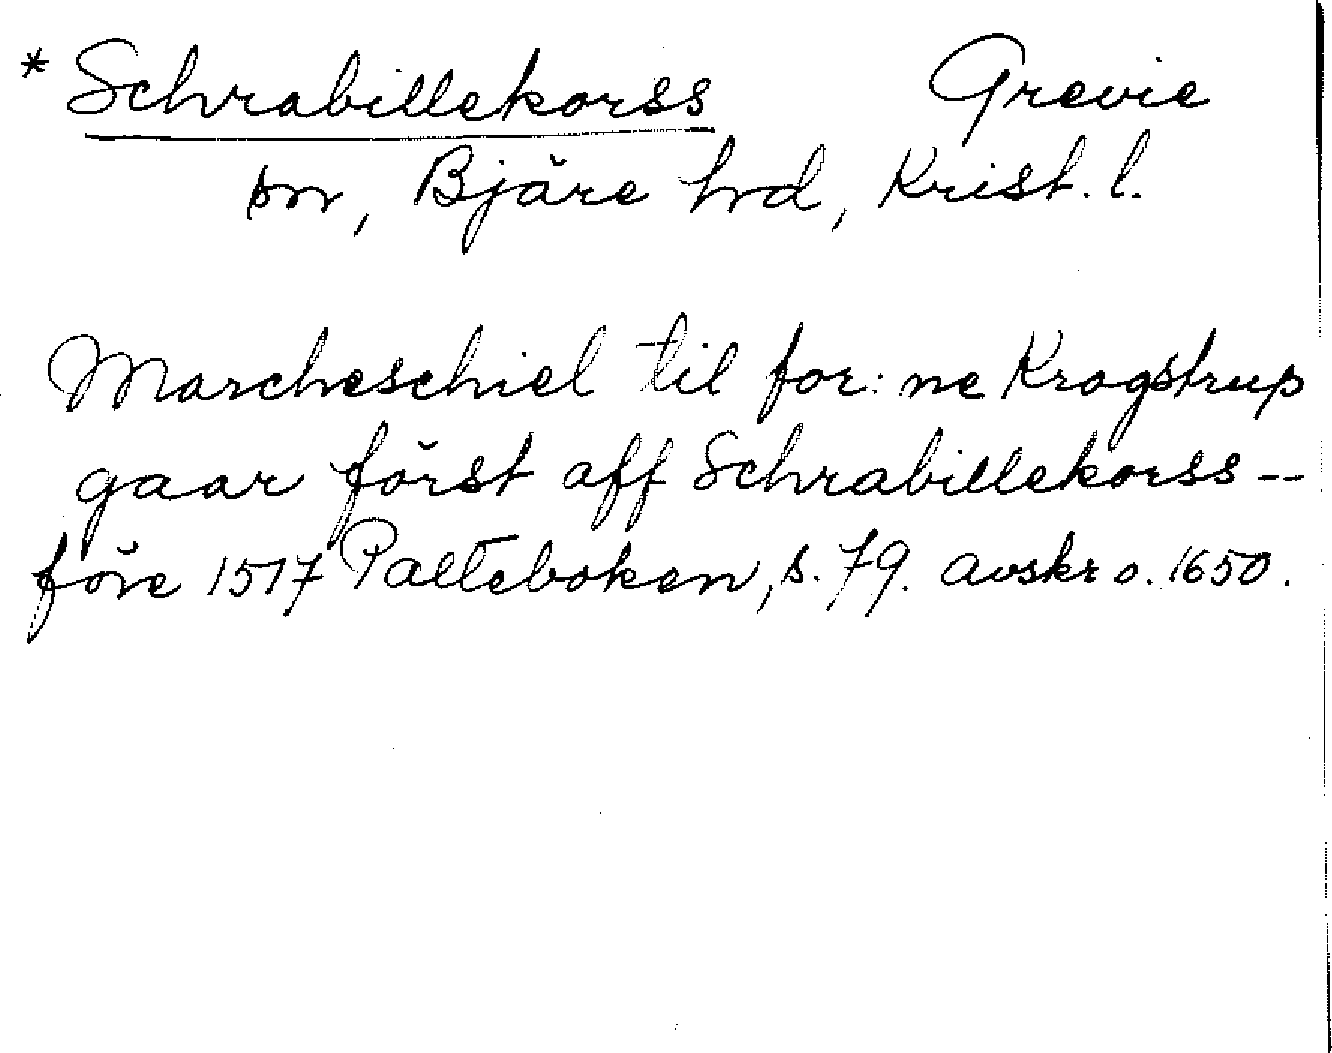 * Schrabillekorss Grevie
sn, Bjäre hrd, Krist. l.
Marcheschiel til for: ne Krogstrup
gaar först aff Schrabillekorss --
före 1517 Palteboken, s. 79. avskr o. 1650.